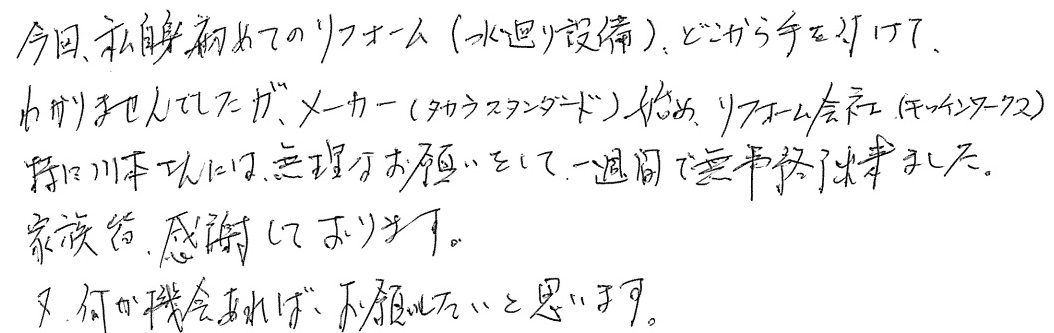 今回、私自身初めてのリフォーム(水廻り設備)、どこから手を付けて、
わかりませんでしたが、メーカー(タカラスタンダード)始め、リフォーム会社(キッチンワークス)
特に川本さんには、無理なお願いをして、一週間で無事終了出来ました。
家族皆、感謝しております。
又、何か機会あれば、お願いしたいと思います。